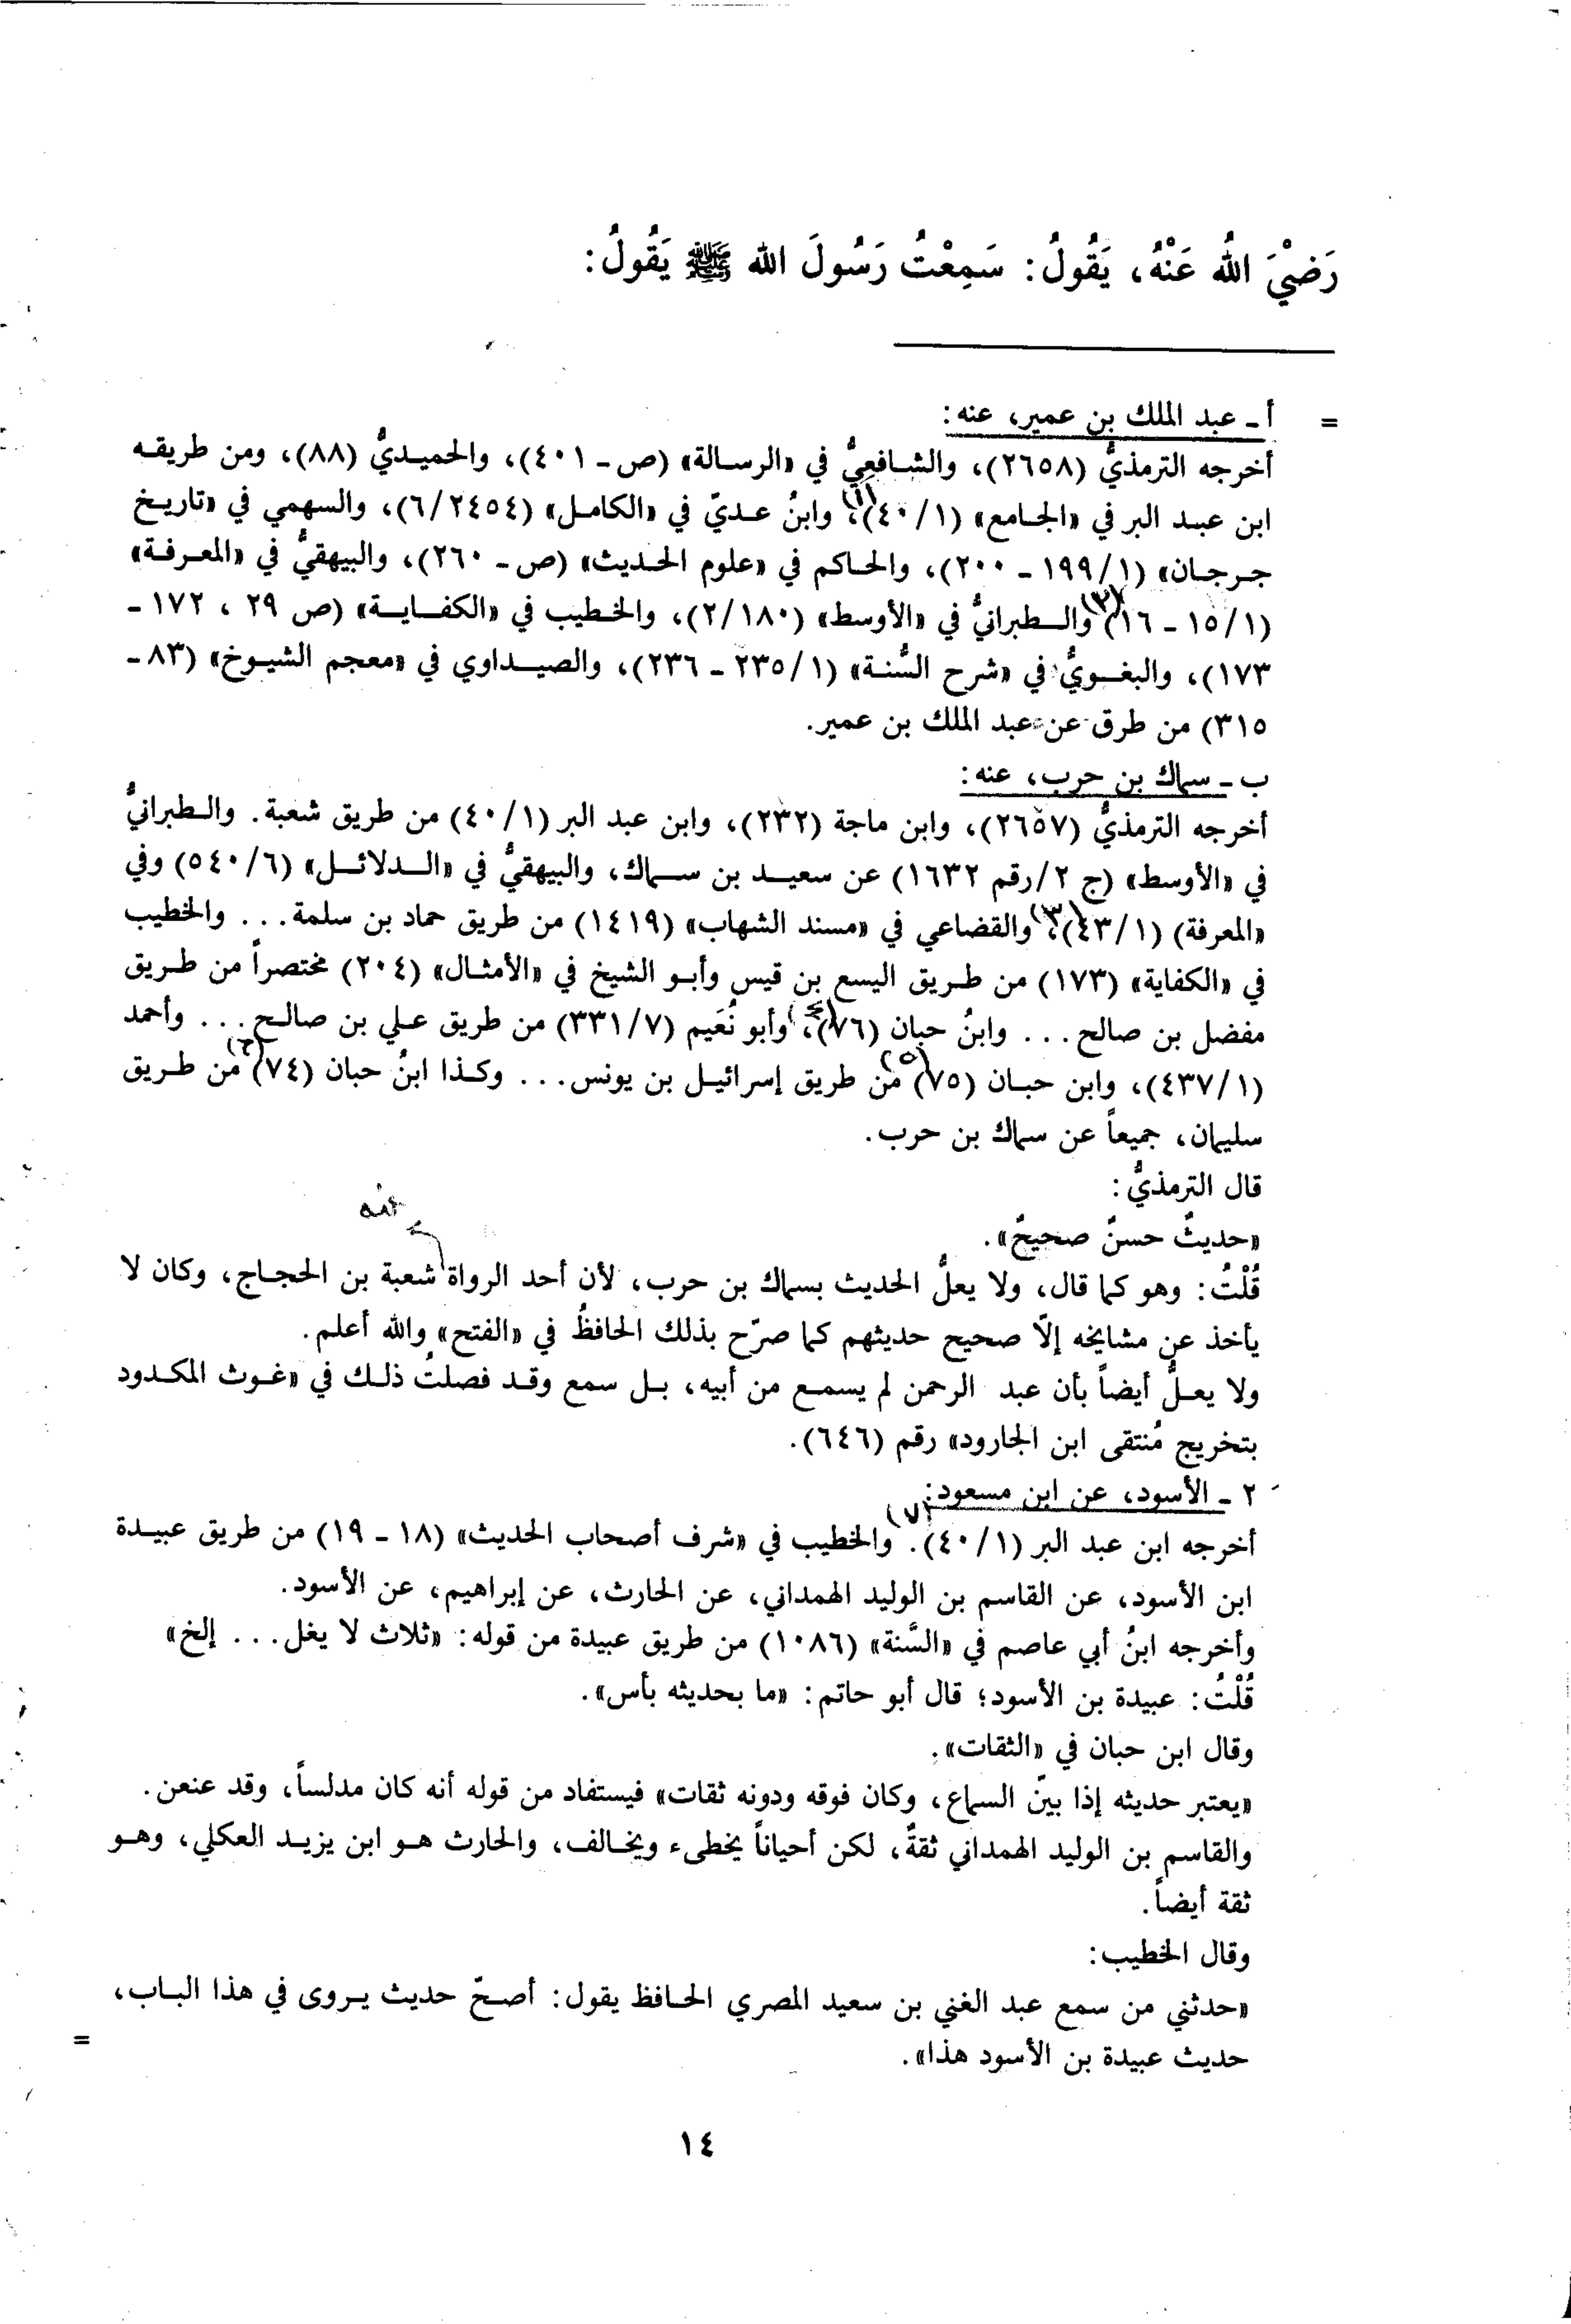 رَضْيَ اللهُ عَنْهُ، يَقُولُ: سَمِعْتُ رَسُولَ الله ﷺ يَقُولُ:
= أ ـ عبد الملك بن عمير، عنه:
أخرجه الترمذيُّ (٢٦٥٨)، والشافعِيُّ في «الرسالة» (ص ـ ٤٠١)، والحميديُّ (٨٨)، ومن طريقه
ابن عبد البر في «الجامع» (١/ ٤٠)(١)، وابنُ عديّ في «الكامل» (٦/٢٤٥٤)، والسهمي في «تاريخ
جرجان» (١/ ١٩٩ ـ ٢٠٠)، والحاكم في «علوم الحديث» (ص ـ ٢٦٠)، والبيهقيُّ في «المعرفة»
(١/ ١٥ ـ ١٦)(٢) والطبرانيُّ في «الأوسط» (٢/١٨٠)، والخطيب في «الكفاية» (ص ٢٩ ، ١٧٢ ـ
١٧٣)، والبغويُّ في «شرح السُّنة» (١/ ٢٣٥ ـ ٢٣٦)، والصيداوي في «معجم الشيوخ» (٨٣ ـ
٣١٥) من طرق عن عبد الملك بن عمير.
ب ـ سماك بن حرب، عنه:
أخرجه الترمذيُّ (٢٦٥٧)، وابن ماجة (٢٣٢)، وابن عبد البر (١/ ٤٠) من طريق شعبة. والطبرانيُّ
في «الأوسط» (ج ٢/رقم ١٦٣٢) عن سعيد بن سماك، والبيهقيُّ في «الدلائل» (٦/ ٥٤٠) وفي
«المعرفة) (١/ ٤٣)(٣)، والقضاعي في «مسند الشهاب» (١٤١٩) من طريق حماد بن سلمة... والخطيب
في «الكفاية» (١٧٣) من طريق اليسع بن قيس وأبو الشيخ في «الأمثال» (٢٠٤) مختصراً من طريق
مفضل بن صالح... وابنُ حبان (٧٦)(٤)، وأبو نُعَيم (٧/ ٣٣١) من طريق علي بن صالح... وأحمد
(١/ ٤٣٧)، وابن حبان (٧٥)(٥) من طريق إسرائيل بن يونس... وكذا ابنُ حبان (٧٤)(٦) من طريق
سليمان، جميعاً عن سماك بن حرب.
قال الترمذيُّ:
«حديثٌ حسنٌ صحيحٌ».
عنه
قُلْتُ: وهو كما قال، ولا يعلُّ الحديث بسماك بن حرب، لأن أحد الرواة شعبة بن الحجاج، وكان لا
يأخذ عن مشايخه إلّا صحيح حديثهم كما صرّح بذلك الحافظُ في «الفتح» والله أعلم.
ولا يعلُّ أيضاً بأن عبد الرحمن لم يسمع من أبيه، بل سمع وقد فصلتُ ذلك في «غوث المكدود
بتخريج مُنتقى ابن الجارود» رقم (٦٤٦).
٢ ـ الأسود، عن ابن مسعود:
أخرجه ابن عبد البر (١/ ٤٠).(٧) والخطيب في «شرف أصحاب الحديث» (١٨ ـ ١٩) من طريق عبيدة
ابن الأسود، عن القاسم بن الوليد الهمداني، عن الحارث، عن إبراهيم، عن الأسود.
وأخرجه ابنُ أبي عاصم في «السَّنة» (١٠٨٦) من طريق عبيدة من قوله: «ثلاث لا يغل... إلخ»
قُلْتُ: عبيدة بن الأسود؛ قال أبو حاتم: «ما بحديثه بأس».
وقال ابن حبان في «الثقات».
«يعتبر حديثه إذا بيّن السماع، وكان فوقه ودونه ثقات» فيستفاد من قوله أنه كان مدلساً، وقد عنعن.
والقاسم بن الوليد الهمداني ثقةٌ، لكن أحياناً يخطىء ويخالف، والحارث هو ابن يزيد العكلي، وهو
ثقة أيضاً.
وقال الخطيب:
«حدثني من سمع عبد الغني بن سعيد المصري الحافظ يقول: أصحّ حديث يروى في هذا الباب،
حديث عبيدة بن الأسود هذا». =
١٤